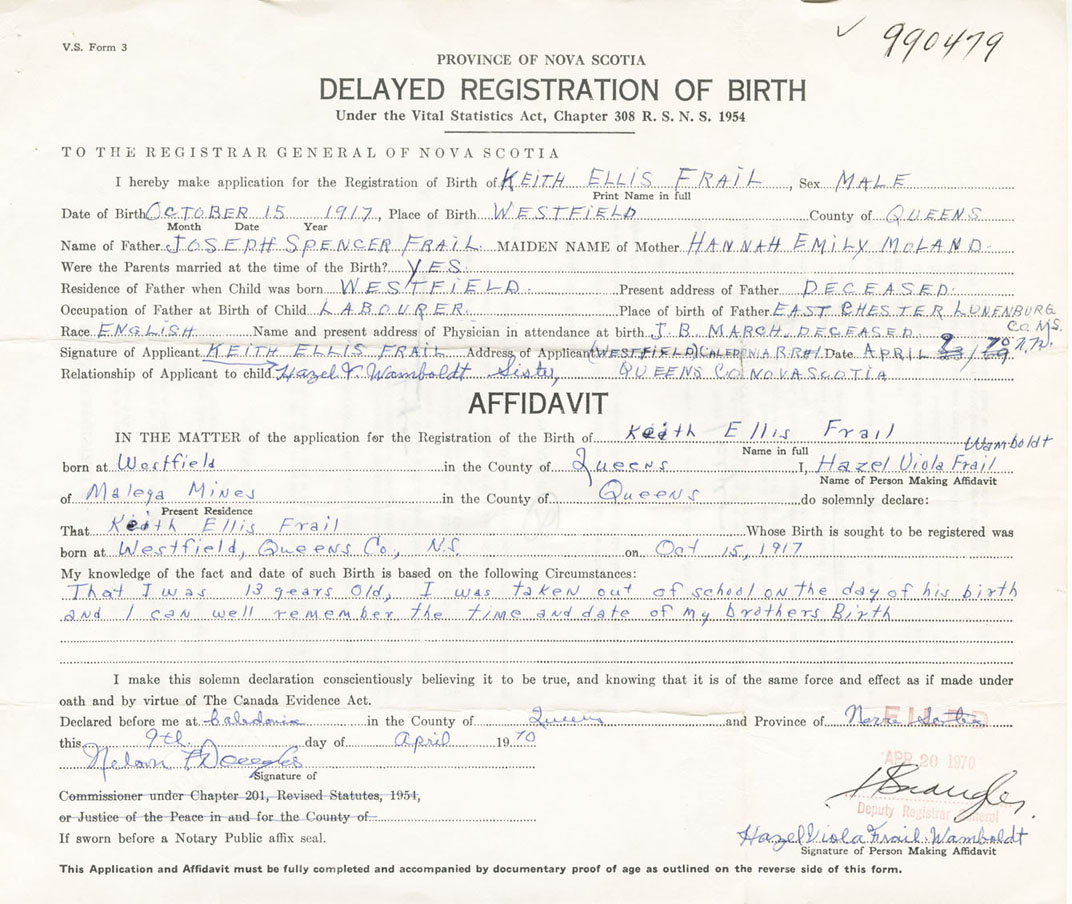 V.S. Form 3
✓ 990479
PROVINCE OF NOVA SCOTIA
DELAYED REGISTRATION OF BIRTH
Under the Vital Statistics Act, Chapter 308 R. S. N. S. 1954
TO THE REGISTRAR GENERAL OF NOVA SCOTIA
I hereby make application for the Registration of Birth of KEITH ELLIS FRAIL, Sex MALE
Print Name in full
Date of Birth OCTOBER 15 1917, Place of Birth WESTFIELD County of QUEENS
Month Date Year
Name of Father JOSEPH SPENCER FRAIL MAIDEN NAME of Mother HANNAH EMILY MOLAND.
Were the Parents married at the time of the Birth? YES.
Residence of Father when Child was born WESTFIELD. Present address of Father DECEASED.
Occupation of Father at Birth of Child LABOURER. Place of birth of Father EAST CHESTER LUNENBURG
CO. N.S.
Race ENGLISH Name and present address of Physician in attendance at birth J. B. MARCH. DECEASED.
Signature of Applicant KEITH ELLIS FRAIL Address of Applicant (WESTFIELD) CALEDONIA R.R#1. Date APRIL 9 / 70
Relationship of Applicant to child Hazel V Wamboldt Sister, QUEENS CO. NOVA SCOTIA
AFFIDAVIT
IN THE MATTER of the application for the Registration of the Birth of Keith Ellis Frail
Name in full
Wamboldt
born at Westfield in the County of Queens I, Hazel Viola Frail
Name of Person Making Affidavit
of Malega Mines in the County of Queens do solemnly declare:
Present Residence
That Keith Ellis Frail Whose Birth is sought to be registered was
born at Westfield, Queens Co., N.S. on Oct 15, 1917
My knowledge of the fact and date of such Birth is based on the following Circumstances:
That I was 13 years Old, I was taken out of school on the day of his birth
and I can well remember the time and date of my brothers Birth
I make this solemn declaration conscientiously believing it to be true, and knowing that it is of the same force and effect as if made under
oath and by virtue of The Canada Evidence Act.
Declared before me at Caledonia in the County of Queens and Province of Nova Scotia
FILED
this 9th day of April 1970
APR 20 1970
Nelson F
Signature of
Commissioner under Chapter 201, Revised Statutes, 1954,
or Justice of the Peace in and for the County of
Deputy Registrar General
If sworn before a Notary Public affix seal.
Hazel Viola Frail. Wamboldt
Signature of Person Making Affidavit
This Application and Affidavit must be fully completed and accompanied by documentary proof of age as outlined on the reverse side of this form.